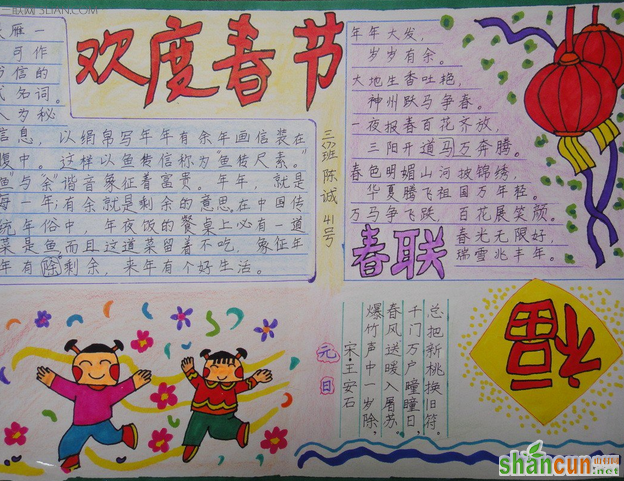 3LIAN.COM
欢度春节
雁一
可作
信的
名词。
人为秘
信息，以绢帛写年年有余年画信装在
腹中。这样以鱼传信称为“鱼传尺素。”
鱼”与“余”谐音象征着富贵。年年，就是
每一年;有余就是剩余的意思,在中国传
统年俗中，年夜饭的餐桌上必有一道
菜是鱼,而且这道菜留着不吃，象征年
年有除剩余，来年有个好生活。
班陈诚41号
年年大发，
岁岁有余。
大地生香吐艳，
神州跃马争春。
一夜报春百花齐放，
三阳开道马万奔腾。
春色明媚山河披锦绣，
华夏腾飞祖国万年轻。
万马争飞跃，百花展笑颜。
春光无限好，
瑞雪兆丰年。
春联
元日
宋王安石
爆竹声中一岁除，
春风送暖入屠苏。
千门万户瞳瞳日，
总把新桃换旧符。
福
shancun
.net